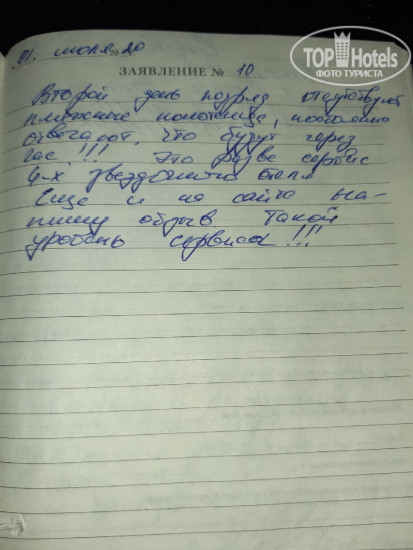 01. июля 2020
ЗАЯВЛЕНИЕ № 10
Второй день подряд отсутствуют
пляжные полотенца,
отвечают, что будут через
час!!! Это разве сервис
4-х звездочного отеля
Еще и на сайте на-
пишу отзыв такой
уровень сервиса!!!
TOP Hotels
ФОТО ТУРИСТА